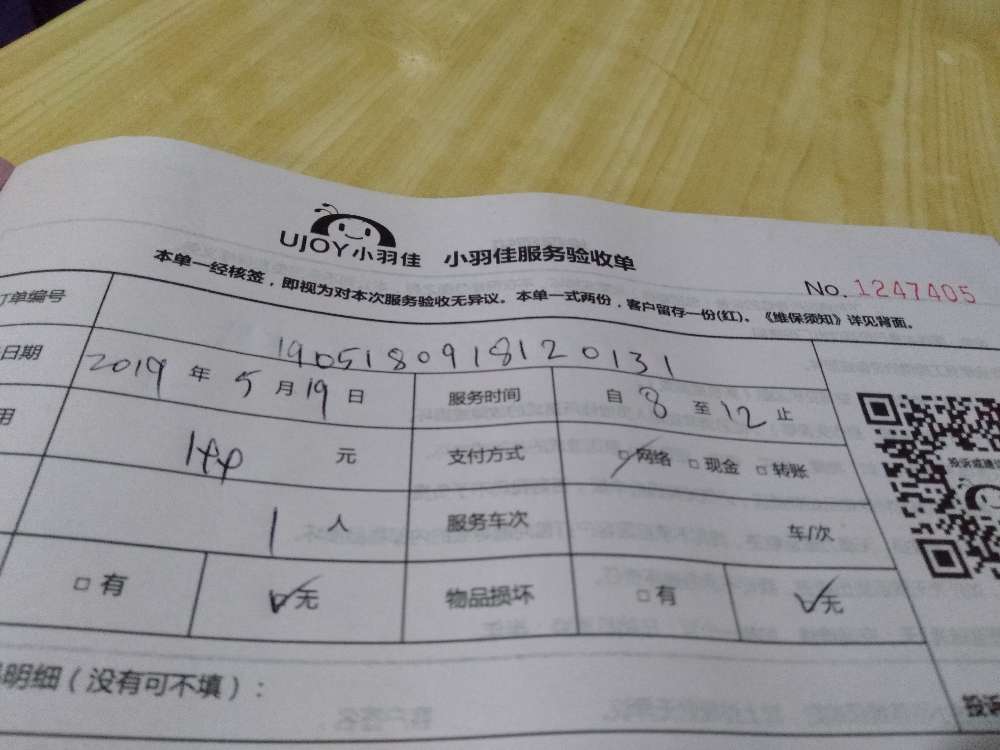 UJOY小羽佳 小羽佳服务验收单
No. 1247405
本单一经核签，即视为对本次服务验收无异议。本单一式两份，客户留存一份(红)。《维保须知》详见背面。
订单编号 190518091812 0131
日期 2019 年 5 月 19 日 服务时间 自 8 至 12 止
用 元 支付方式 □网络 □现金 □转账
1 人 服务车次 车/次
□有 ☑无 物品损坏 □有 ☑无
明细（没有可不填）：
投诉或建议
投诉